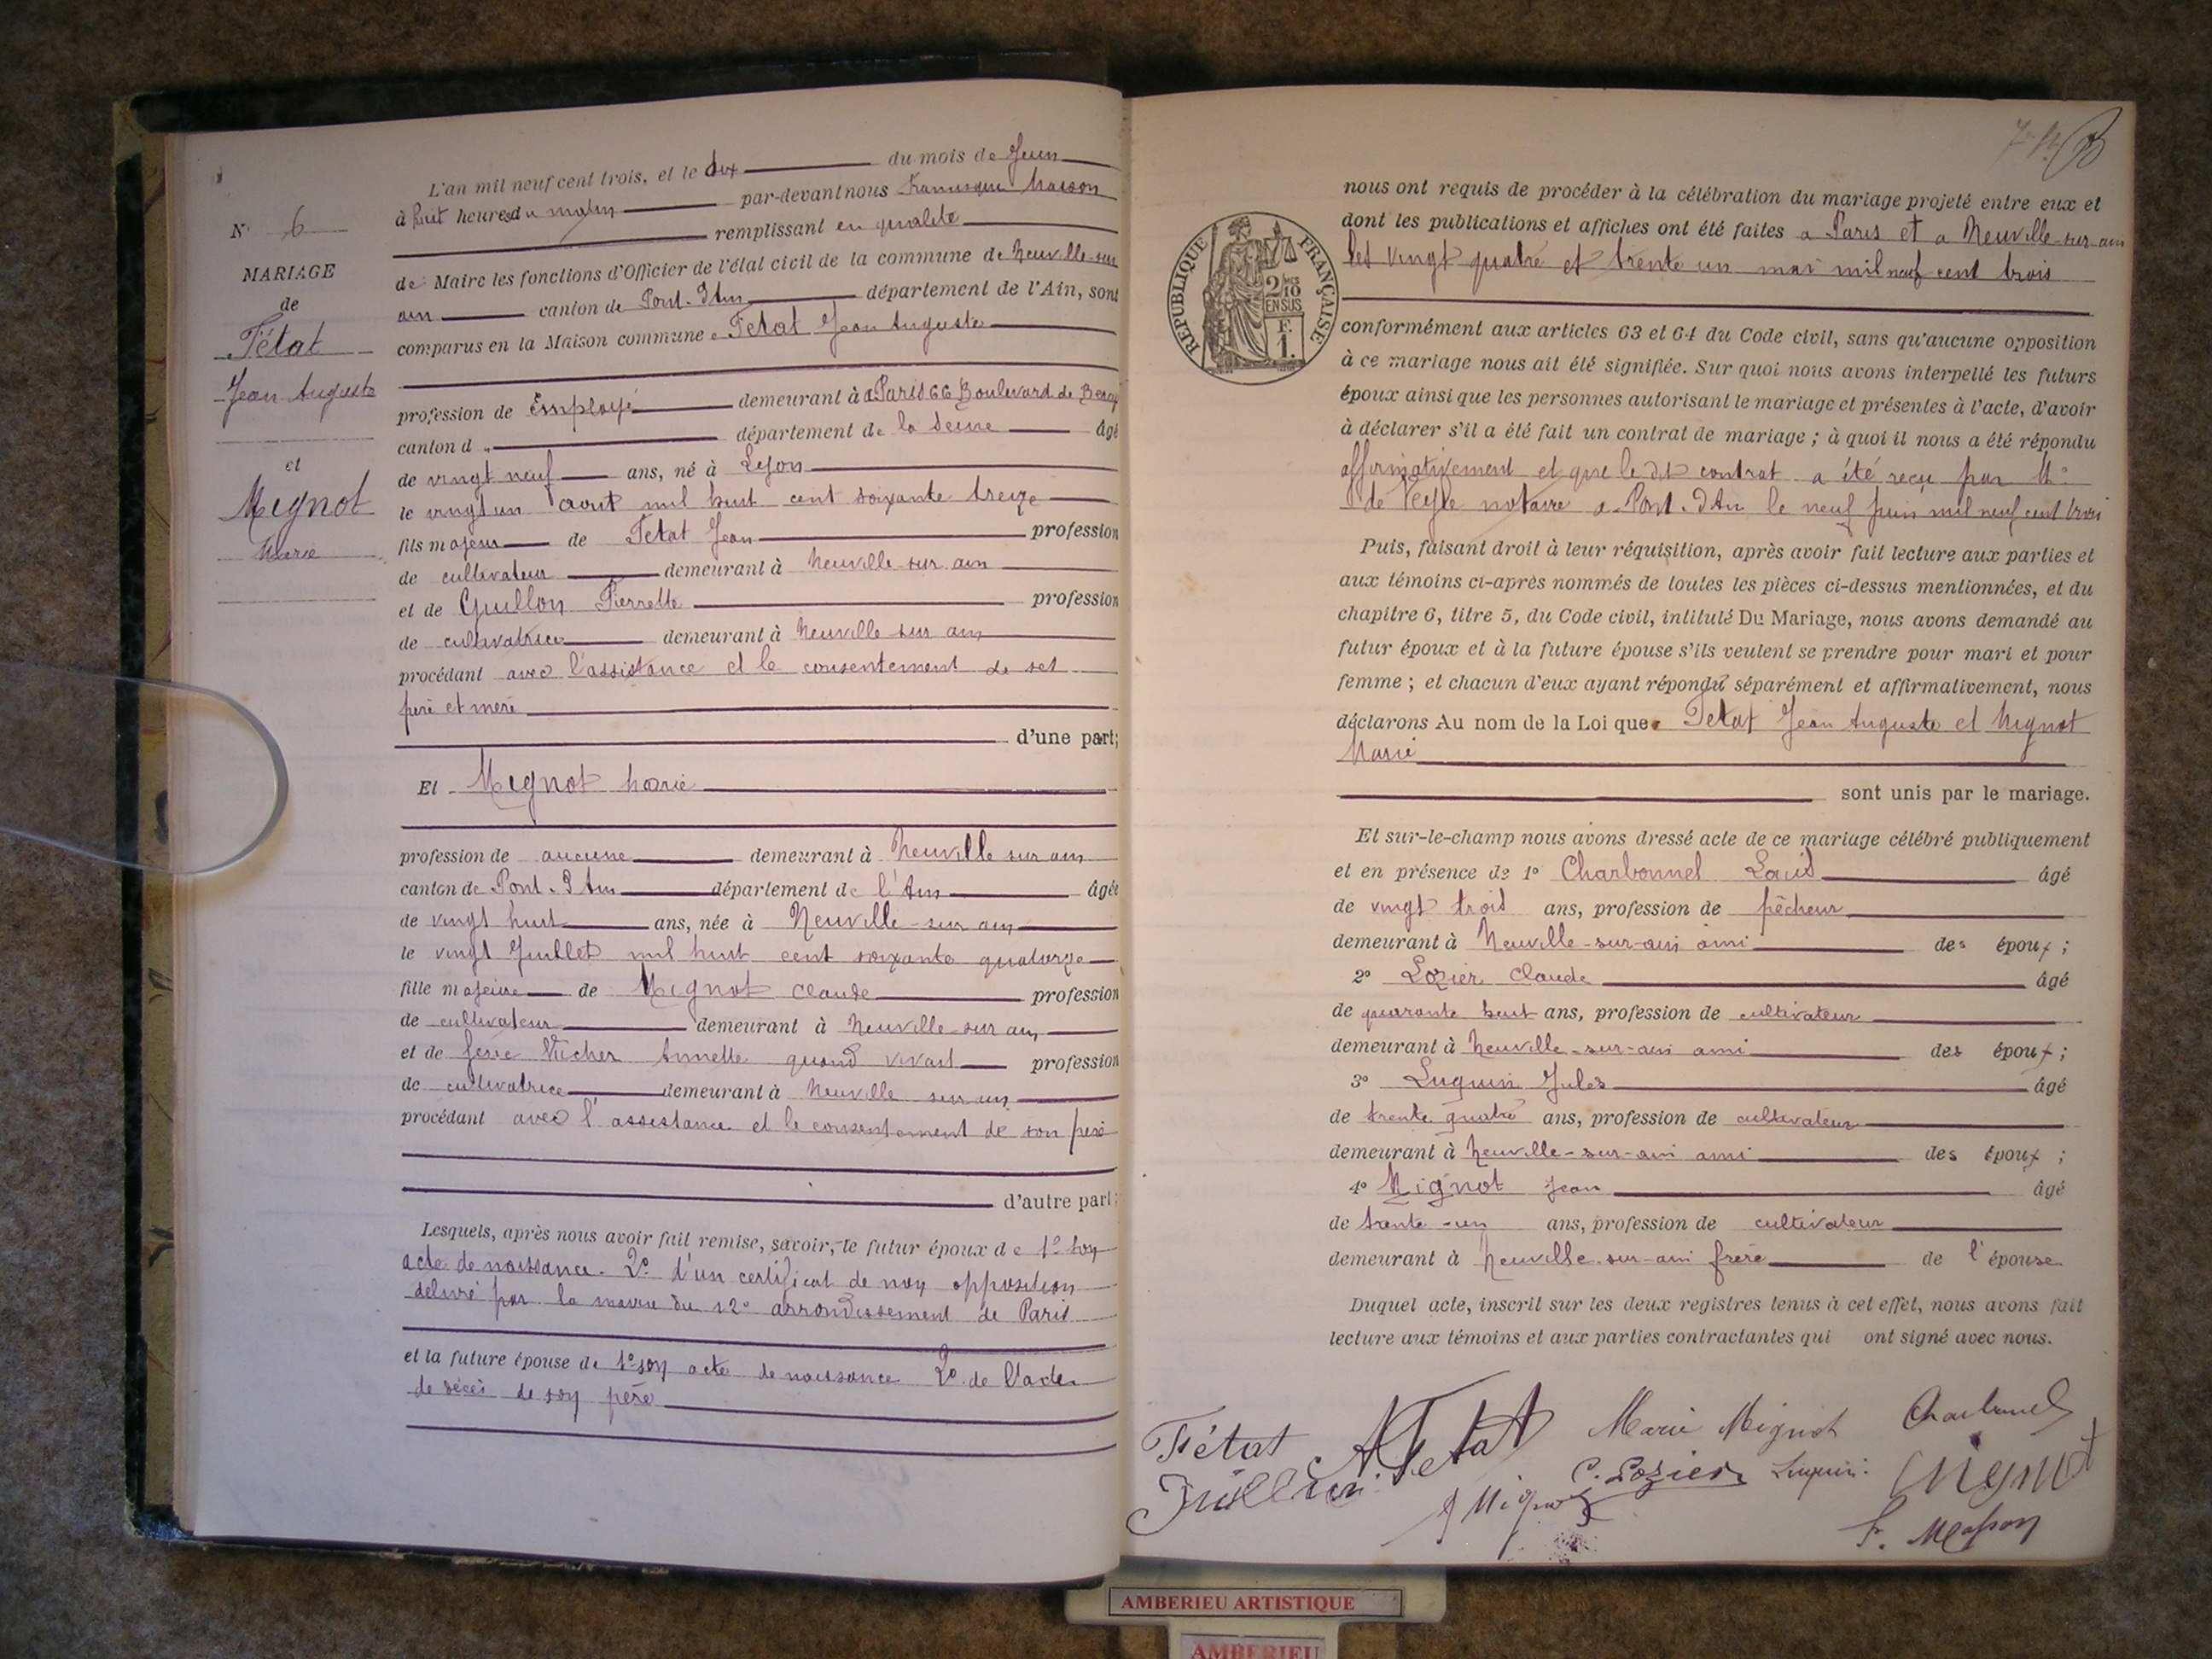 L'an mil neuf cent trois, et le dix du mois de Juin
à huit heures du matin par-devant nous Francisque Masson
remplissant en qualité
de Maire les fonctions d'Officier de l'état civil de la commune de Neuville-sur
ain canton de Pont-d'Ain département de l'Ain, sont
comparus en la Maison commune Tétat Jean Auguste
profession de Employé demeurant à a Paris 66 Boulevard de Bercy
canton d département de la Seine âgé
de vingt neuf ans, né à Lyon
le vingt un aout mil huit cent soixante treize
fils majeur de Tetat Jean profession
de cultivateur demeurant à Neuville-sur ain
et de Guillon Pierrette profession
de cultivatrice demeurant à Neuville sur ain
procédant avec l'assistance et le consentement de ses
père et mère
d'une part;
Et Mignot Marie
profession de aucune demeurant à Neuville sur ain
canton de Pont-d'Ain département de l'Ain âgée
de vingt huit ans, née à Neuville-sur ain
le vingt Juillet mil huit cent soixante quatorze
fille majeure de Mignot Claude profession
de cultivateur demeurant à Neuville-sur ain
et de Annette quand vivait profession
de cultivatrice demeurant à Neuville sur ain
procédant avec l'assistance et le consentement de son père
d'autre part;
Lesquels, après nous avoir fait remise, savoir, le futur époux de 1° son
acte de naissance. 2° d'un certificat de non opposition
délivré par la mairie du 12e arrondissement de Paris
et la future épouse de 1° son acte de naissance 2° de l'acte
de décès de son père
N° 6
MARIAGE
de
Tétat
Jean Auguste
et
Mignot
Marie
nous ont requis de procéder à la célébration du mariage projeté entre eux et
dont les publications et affiches ont été faites a Paris et a Neuville-sur-ain
les vingt quatre et trente un mai mil neuf cent trois
conformément aux articles 63 et 64 du Code civil, sans qu'aucune opposition
à ce mariage nous ait été signifiée. Sur quoi nous avons interpellé les futurs
époux ainsi que les personnes autorisant le mariage et présentes à l'acte, d'avoir
à déclarer s'il a été fait un contrat de mariage ; à quoi il nous a été répondu
affirmativement et que le dit contrat a été reçu par Me
de notaire a Pont-d'Ain le neuf juin mil neuf cent trois
Puis, faisant droit à leur réquisition, après avoir fait lecture aux parties et
aux témoins ci-après nommés de toutes les pièces ci-dessus mentionnées, et du
chapitre 6, titre 5, du Code civil, intitulé Du Mariage, nous avons demandé au
futur époux et à la future épouse s'ils veulent se prendre pour mari et pour
femme ; et chacun d'eux ayant répondu séparément et affirmativement, nous
déclarons Au nom de la Loi que Tetat Jean Auguste et Mignot
Marie
sont unis par le mariage.
Et sur-le-champ nous avons dressé acte de ce mariage célébré publiquement
et en présence de 1° Charbonnel Louis âgé
de vingt trois ans, profession de pêcheur
demeurant à Neuville-sur-ain ami des époux ;
2° Lozier Claude âgé
de quarante huit ans, profession de cultivateur
demeurant à Neuville-sur-ain ami des époux ;
3° Luguin Jules âgé
de trente quatre ans, profession de cultivateur
demeurant à Neuville-sur-ain ami des époux ;
4° Mignot Jean âgé
de trente-un ans, profession de cultivateur
demeurant à Neuville-sur-ain frère de l'épouse
Duquel acte, inscrit sur les deux registres tenus à cet effet, nous avons fait
lecture aux témoins et aux parties contractantes qui ont signé avec nous.
RÉPUBLIQUE FRANÇAISE
2/10
EN SUS
F.
1.
Tétat A Tetat Marie Mignot Charbonnel
C. Lozier Luguin Mignot
J Mignot
F. Masson
AMBERIEU ARTISTIQUE
AMBERIEU